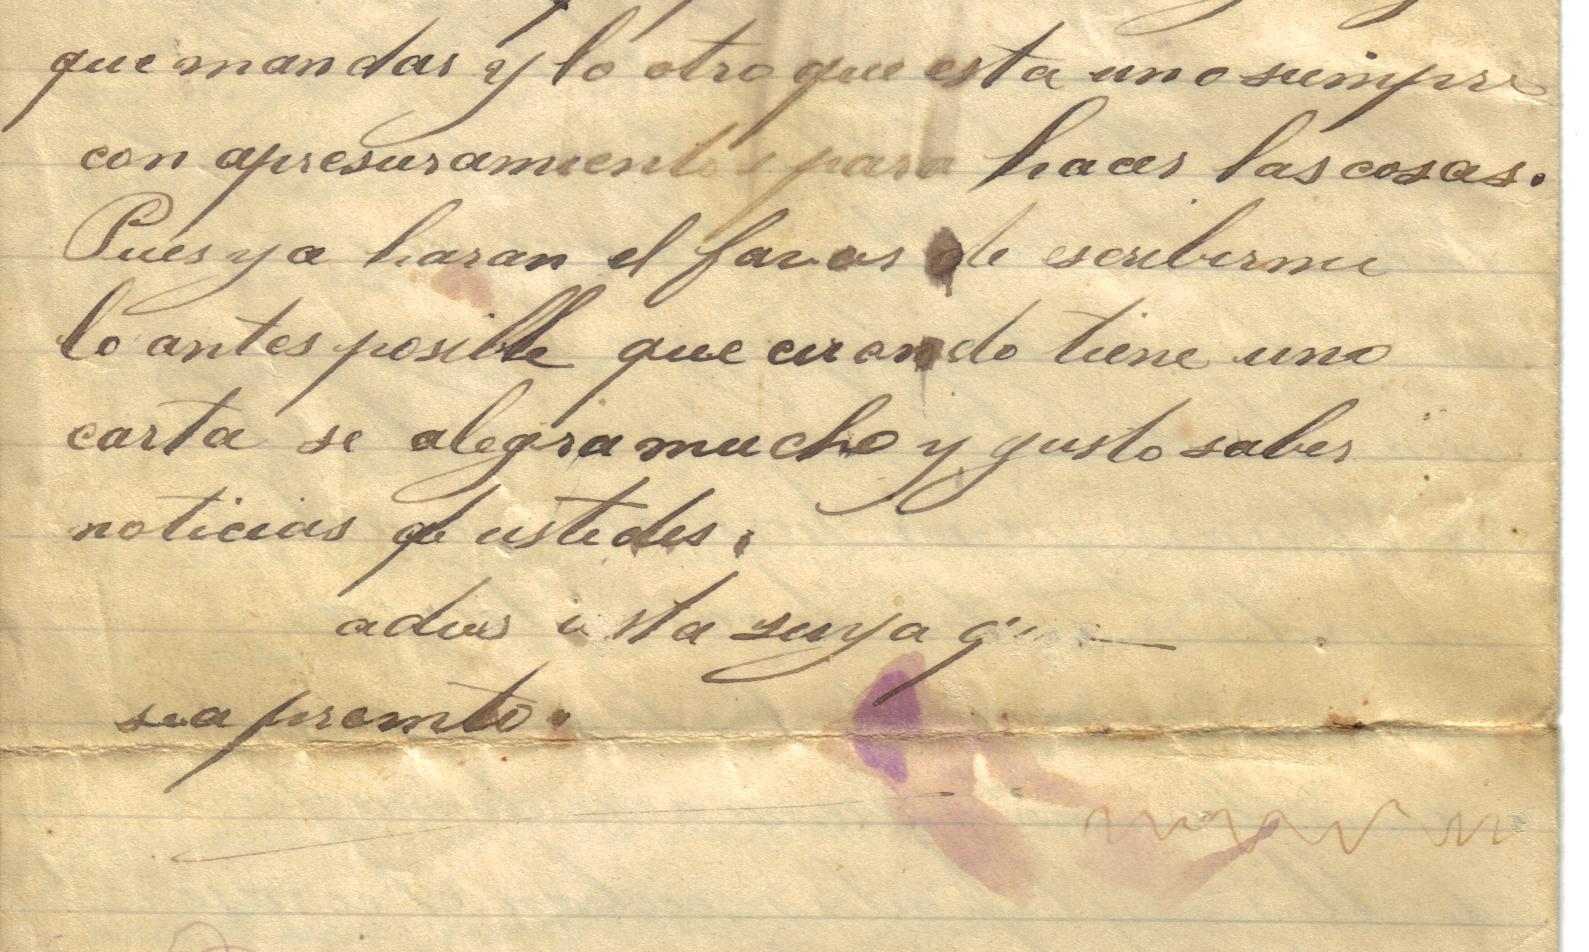 que mandas y lo otro que esta uno siempre
con apresuramiento para hacer las cosas.
Pues ya haran el favor de escribirme
lo antes posible que cuando tiene uno
carta se alegra mucho y gusto saber
noticias de ustedes.
adios ista suya que
sea promto.